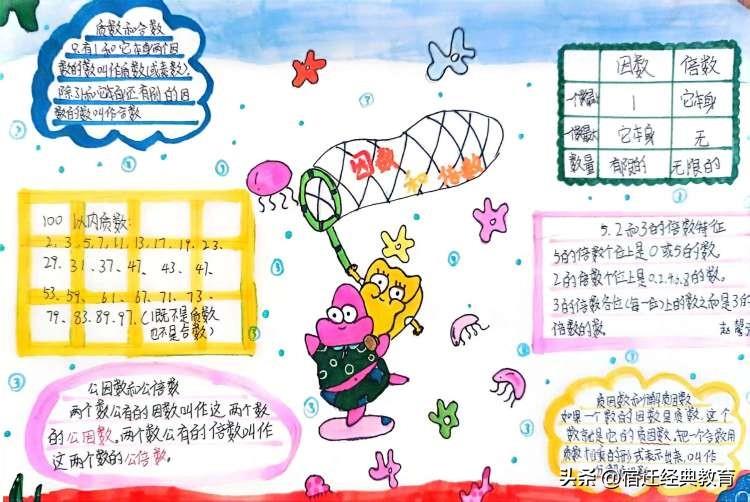 质数和合数
只有1和它本身两个因
数的数叫作质数(或素数),
除了1和它本身还有别的因
数的数叫作合数
因数 倍数
1 它本身
它本身 无
数量 有限的 无限的
因数和倍数
100以内质数:
2、3、5、7、11、13、17、19、23、
29、31、37、47、43、47、
53、59、61、67、71、73、
79、83、89、97、(1既不是质数
也不是合数)
5、2和3的倍数特征
5的倍数个位上是0或5的数。
2的倍数个位上是0、2、4、6、8的数。
3的倍数各位(每一位)上的数之和是3的
倍数的数。
赵
公因数和公倍数
两个数公有的因数叫作这两个数
的公因数。两个数公有的倍数叫作
这两个数的公倍数。
质因数和分解质因数
如果一个数的因数是质数,这个
数就是它的质因数。把一个合数用
质数相乘的形式表示出来,叫作
头条 @宿迁经典教育